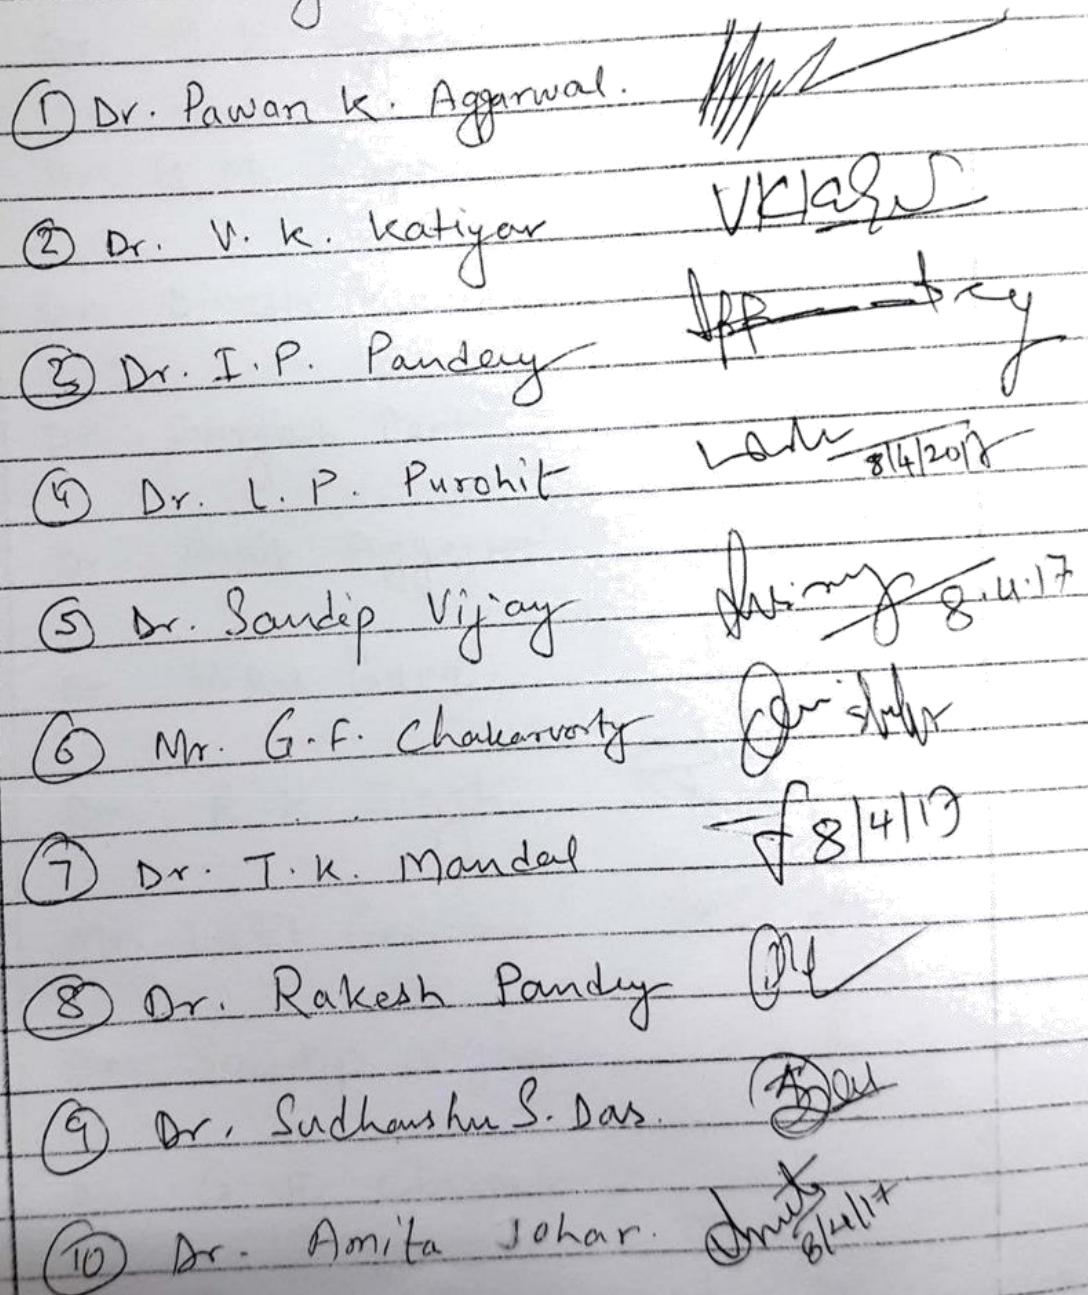 1 Dr. Pawan K. Aggarwal.
2 Dr. V. K. Katiyar
3 Dr. I. P. Pandey
4 Dr. L. P. Purohit 8/4/2017
5 Dr. Sandip Vijay 8.4.17
6 Mr. G. F. Chakarvorty
7 Dr. T. K. Mandal 8/4/17
8 Dr. Rakesh Pandey
9 Dr. Sudhanshu S. Das.
10 Dr. Amita Johar. 8/4/17